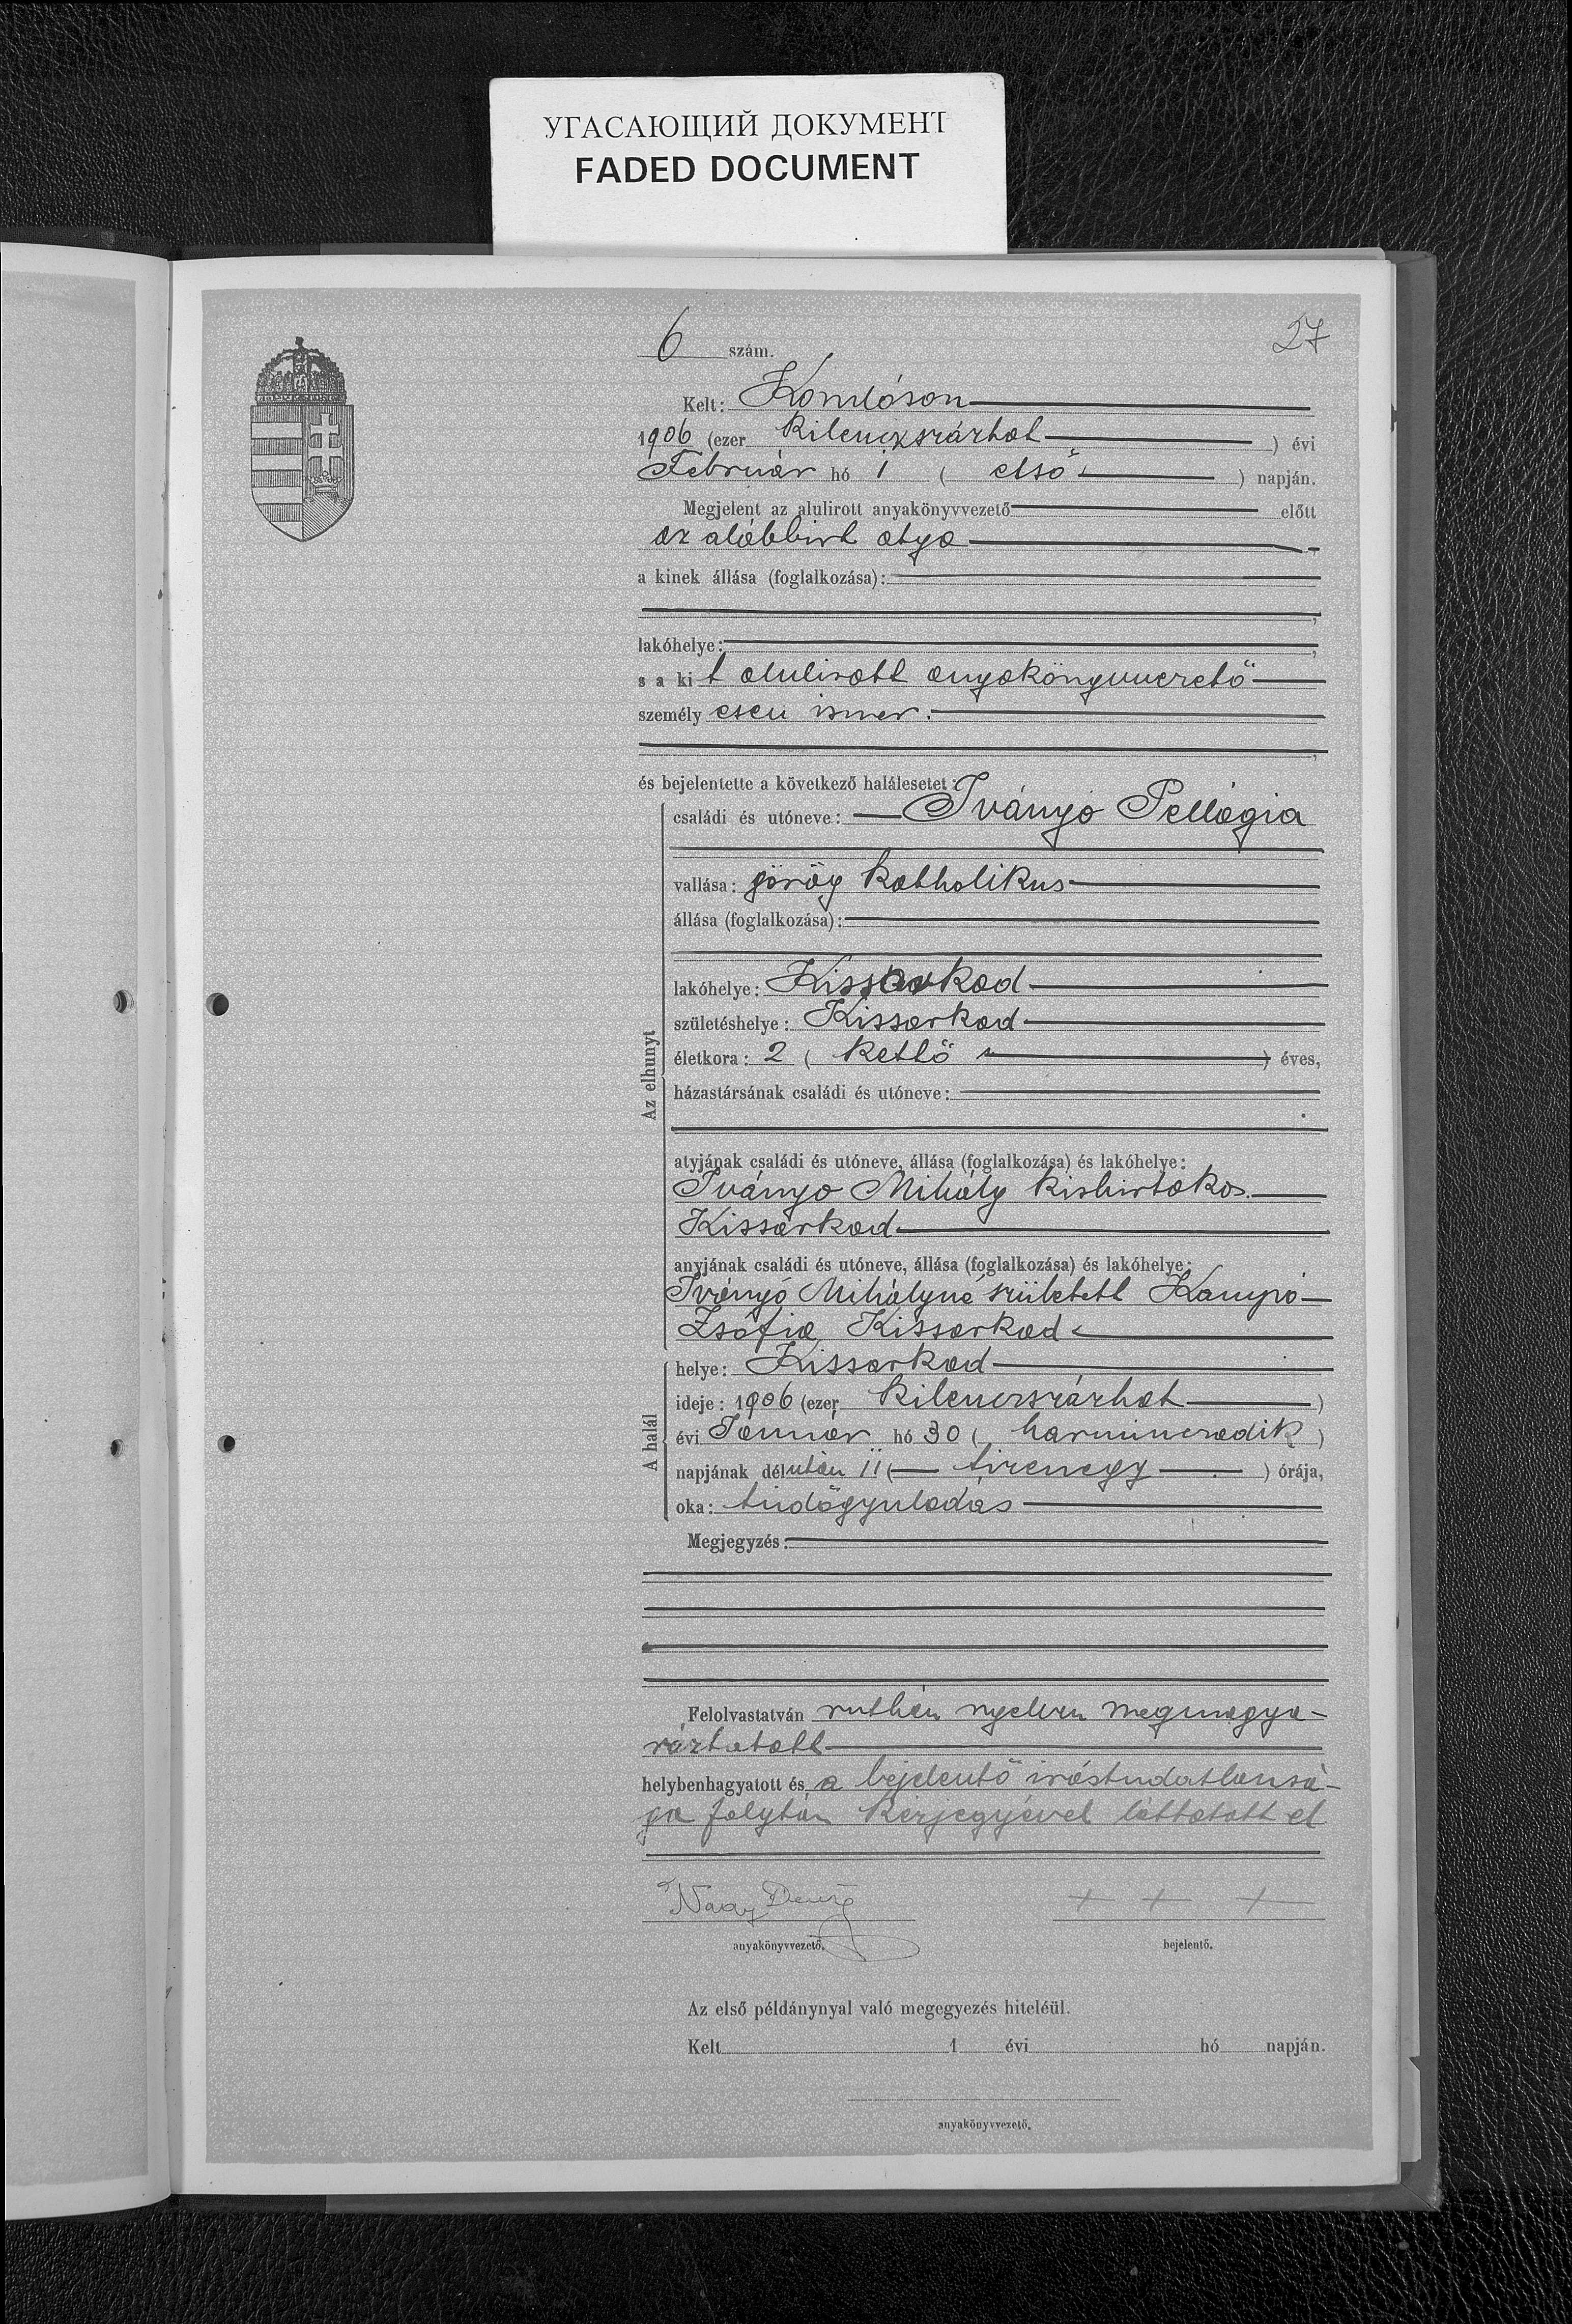 УГАСАЮЩИЙ ДОКУМЕНТ
FADED DOCUMENT
27
6 szám.
Kelt: Komlóson
1906 (ezer kilenczszázhat ) évi
Február hó 1 ( első ) napján.
Megjelent az alulirott anyakönyvvezető előtt
az alábbirt atya
a kinek állása (foglalkozása):
lakóhelye:
s a kit alulirott anyakönyvvezető
személyesen ismer.
és bejelentette a következő halálesetet:
Az elhunyt
családi és utóneve: Iványo Pellagia
vallása: görög katholikus
állása (foglalkozása):
lakóhelye: Kissarkad
születéshelye: Kissarkad
életkora: 2 ( kettő ) éves,
házastársának családi és utóneve:
atyjának családi és utóneve, állása (foglalkozása) és lakóhelye:
Iványo Mihály kisbirtokos
Kissarkad
anyjának családi és utóneve, állása (foglalkozása) és lakóhelye:
Iványó Mihályné született Kampó
Zsófia Kissarkad
A halál
helye: Kissarkad
ideje: 1906 (ezer kilenczszázhat )
évi Január hó 30 ( harminczadik )
napjának délután 11 ( tizenegy ) órája,
oka: tüdőgyuladás
Megjegyzés:
Felolvastatván ruthén nyelven megmagya-
ráztatott
helybenhagyatott és a bejelentő irástudatlansá-
ga folytán kézjegyével láttatott el
Nagy + + +
anyakönyvvezető. bejelentő.
Az első példánynyal való megegyezés hiteléül.
Kelt 1 évi hó napján.
anyakönyvvezető.